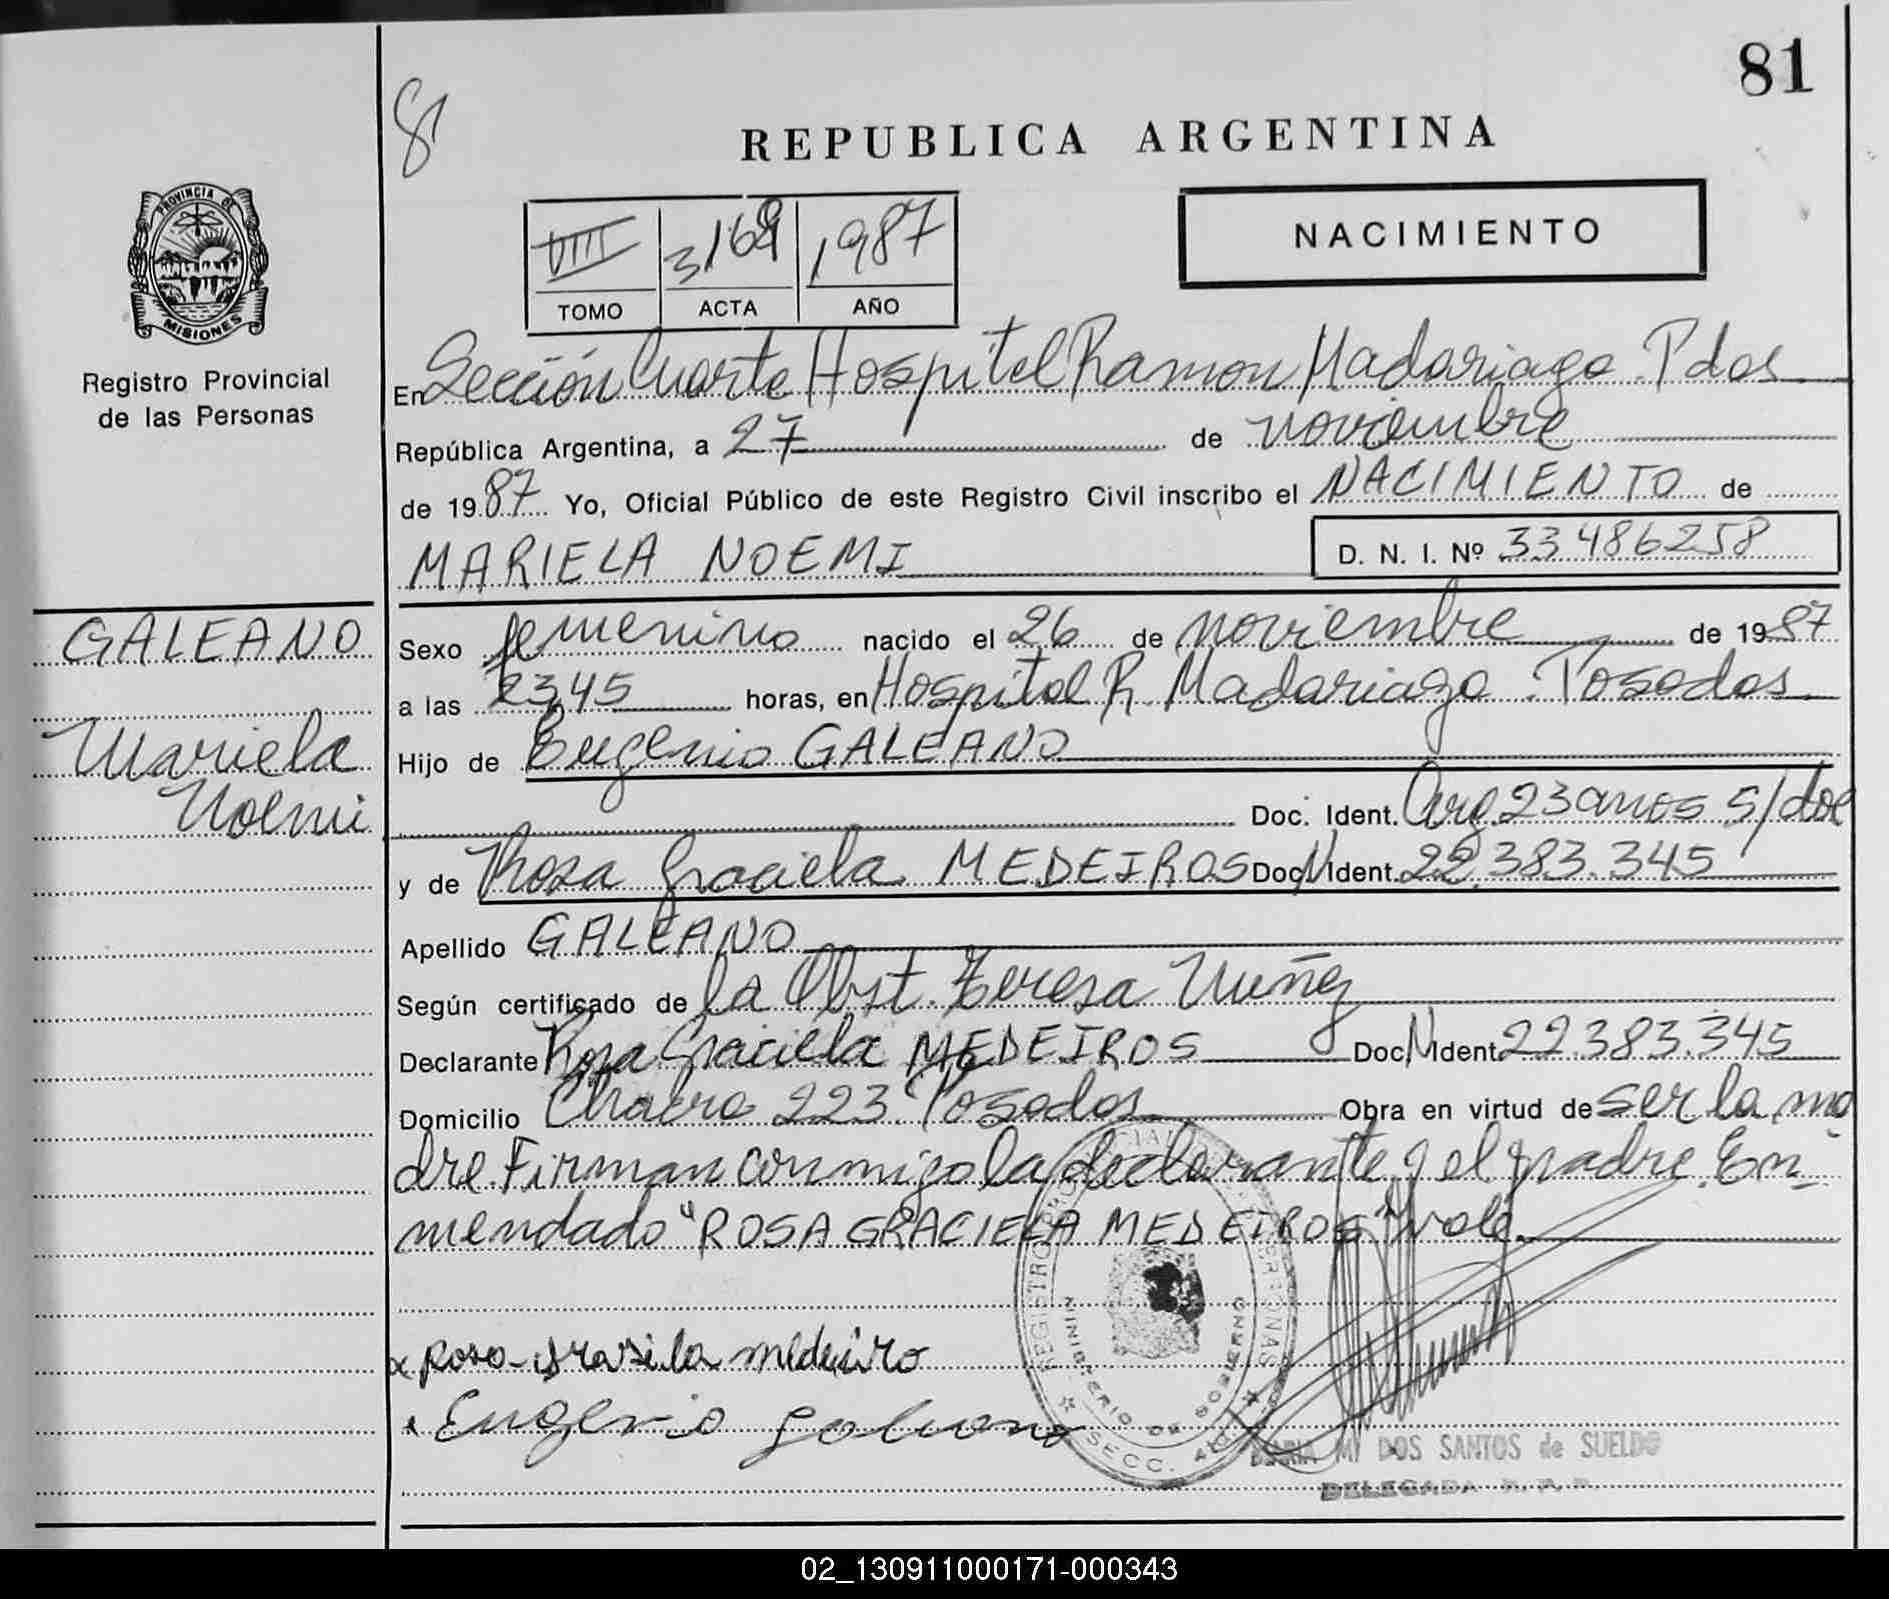 81
8
REPUBLICA ARGENTINA
PROVINCIA DE
MISIONES
Registro Provincial
de las Personas
VIII 3169 1987
TOMO ACTA AÑO
NACIMIENTO
En Sección Cuarta Hospital Ramon Madariaga Pdas
República Argentina, a 27 de noviembre
de 1987 Yo, Oficial Público de este Registro Civil inscribo el NACIMIENTO de
MARIELA NOEMI D. N. I. Nº 33486258
GALEANO
Mariela
Noemi
Sexo femenino nacido el 26 de noviembre de 1987
a las 23,45 horas, en Hospital R. Madariaga. Posadas
Hijo de Eugenio GALEANO
Doc. Ident. Arg 23 anos s/doc
y de Rosa Graciela MEDEIROS Doc N Ident. 22.383.345
Apellido GALEANO
Según certificado de la Obst. Teresa Nuñez
Declarante Rosa Graciela MEDEIROS Doc N Ident 22.383.345
Domicilio Chacra 223 Posadas Obra en virtud de ser la ma
dre. Firman conmigo la declarante y el padre. En-
mendado "ROSA GRACIELA MEDEIROS" vale
x Rosa grasiela medeiro
x Eugenio Galeano
REGISTRO PERSONAS
MINISTERIO DE GOBIERNO
SECC.
MARIA M. DOS SANTOS de SUELDO
DELEGADA R. P. P.
02_130911000171-000343